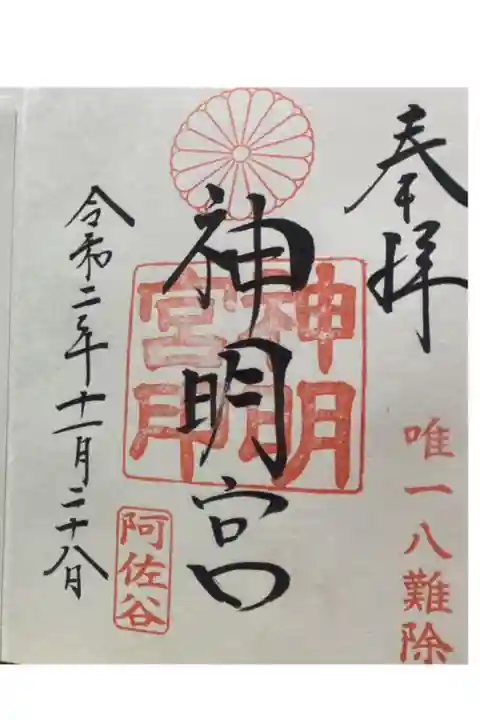 奉拝
唯一八難除
神明宮
神明宮印
令和二年十一月二十八日
阿佐谷